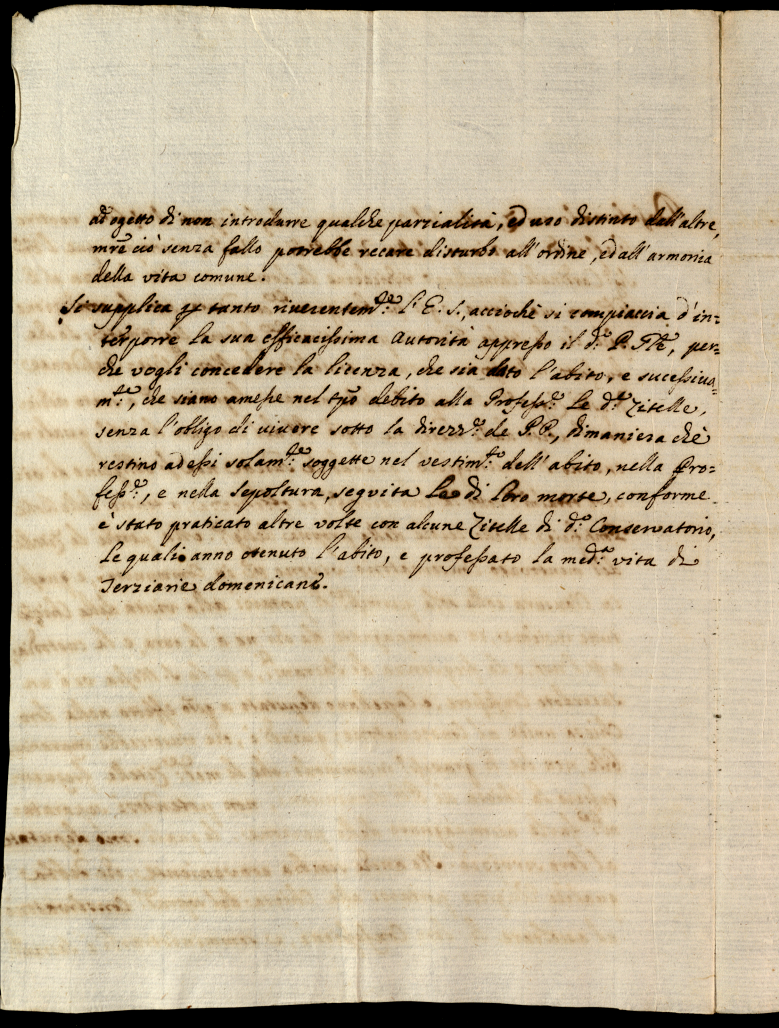 ad ogetto di non introdurre qualche parzialità, ed uso distinto dall'altre,
mr̃e ciò senza fallo potrebbe recare disturbo all'ordine, ed all'armonica
della vita comune.
Si supplica p tanto riverentem.te l'E. S., acciochè si compiaccia d'in=
terporre la sua efficacissima autorità appresso il d.o P. Gle, per=
chè vogli concedere la licenza, che sia dato l'abito, e sucessiva=
m.te, che siano amese nel tpõ debito alla Profess.e le d.e Zitelle,
senza l'obligo di vivere sotto la direzz.e de P.P., dimaniera chè
restino ad essi solam.te soggette nel vestim.to dell'abito, nella Pro=
fess.e, e nella sepoltura, seguita la di loro morte, conforme
è stato praticato altre volte con alcune Zitelle di d.o Conservatorio,
le quali anno otenuto l'abito, e professato la med.a vita di
Terziarie domenicane.